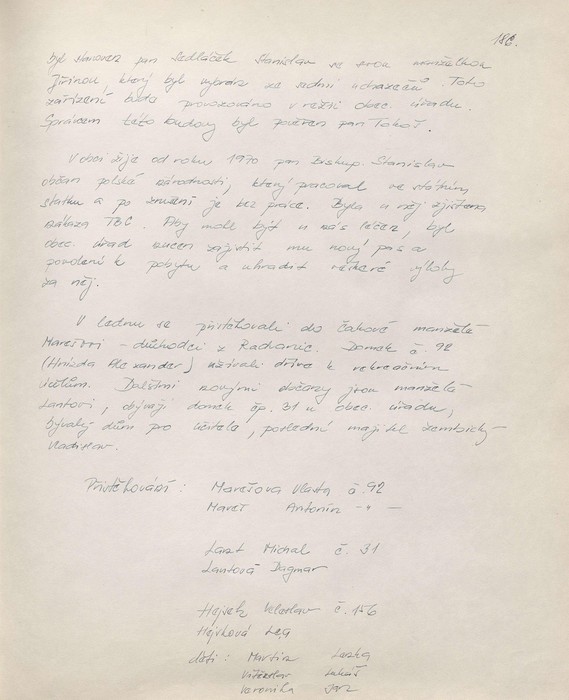 186.
byl stanoven pan Sedláček Stanislav se svou manželkou
Jiřinou, který byl vybrán ze sedmi uchazečů. Toto
zařízení bude provozováno v režii obec. úřadu.
Správcem této budovy byl pověřen pan Tokoš.
V obci žije od roku 1970 pan Biskup Stanislav
občan polské národnosti, který pracoval ve státním
statku a po zrušení je bez práce. Byla u něj zjištěna
nákaza TBC. Aby mohl být u nás léčen, byl
obec. úřad nucen zajistit mu nový pas a
povolení k pobytu a uhradit veškeré výlohy
za něj.
V lednu se přistěhovali do Čakové manželé
Marešovi - důchodci z Radvanic. Domek č. 92
(Hnízda Alexander) užívali dříve k rekreačním
účelům. Dalšími novými občany jsou manželé
Lantovi, obývají domek čp. 31 u obec. úřadu,
bývalý dům pro učitele, poslední majitel
Vladislav.
Přistěhování: Marešova Vlasta č. 92
Mareš Antonín -"-
Lant Michal č. 31
Lantová Dagmar
Hejvek č. 156
Hejvková
děti: Martin Lenka
Vítězslav Lukáš
Veronika Jan